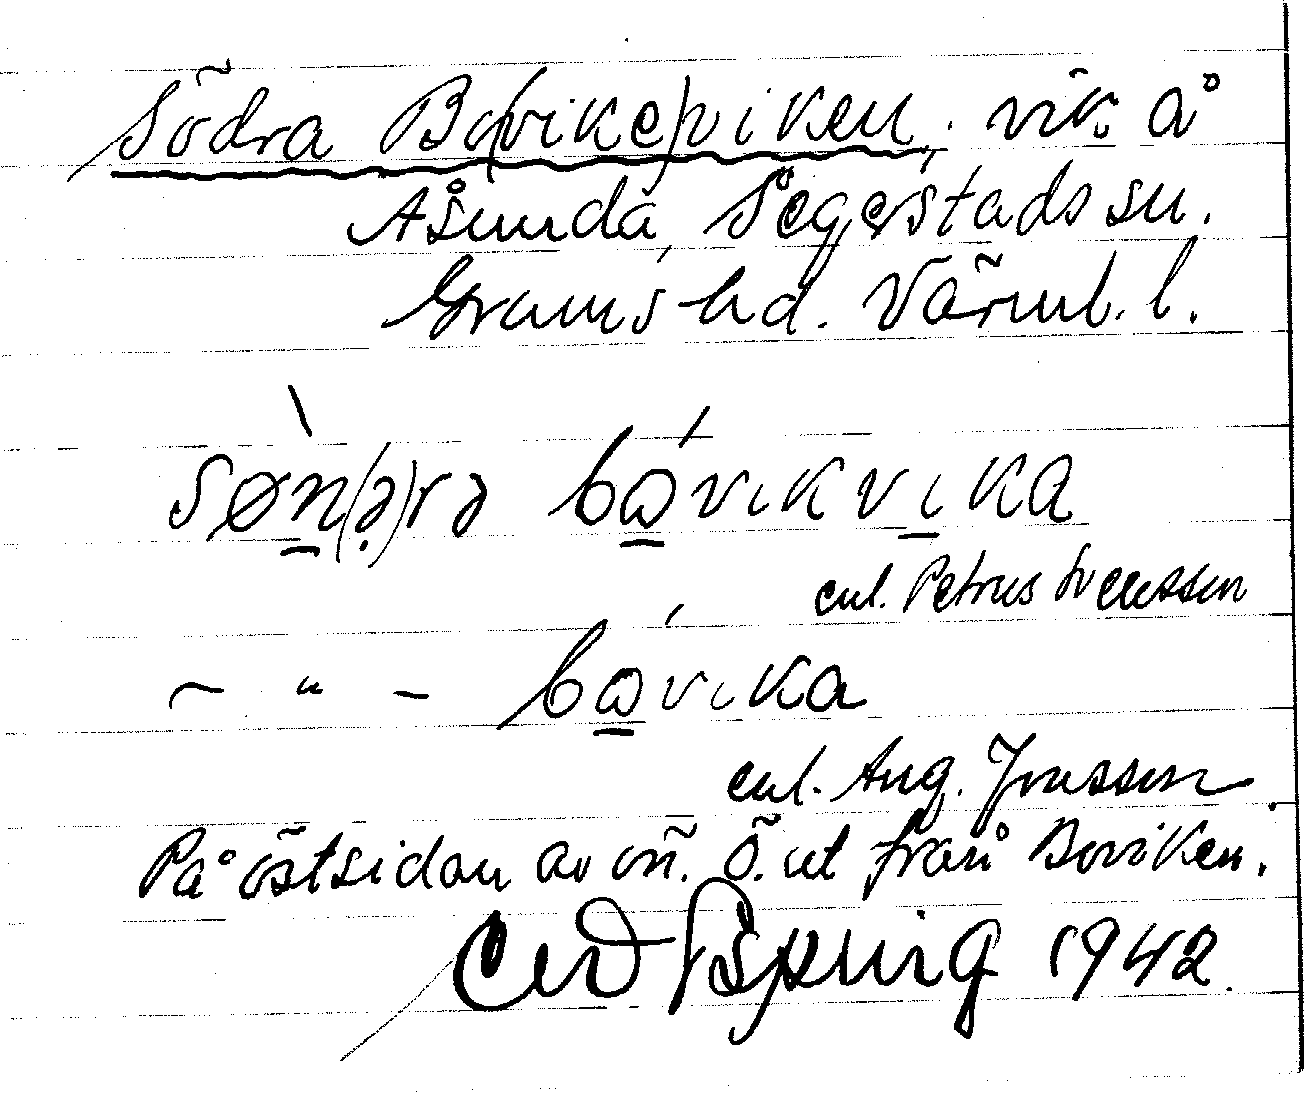 Södra Bo(vike)viken, vik å
Åsunda, Segerstads sn.
Grums hd. Värml. l.
søn(ə)rə bωvıkvıka
enl. Petrus Svensson
– " – bωvıka
enl. Aug. Jonsson
På östsidan av ön. Ö. ut från Boviken.
1942.